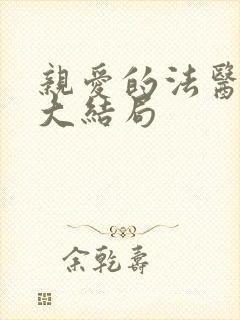 親愛的法醫
大結局
余乾壽